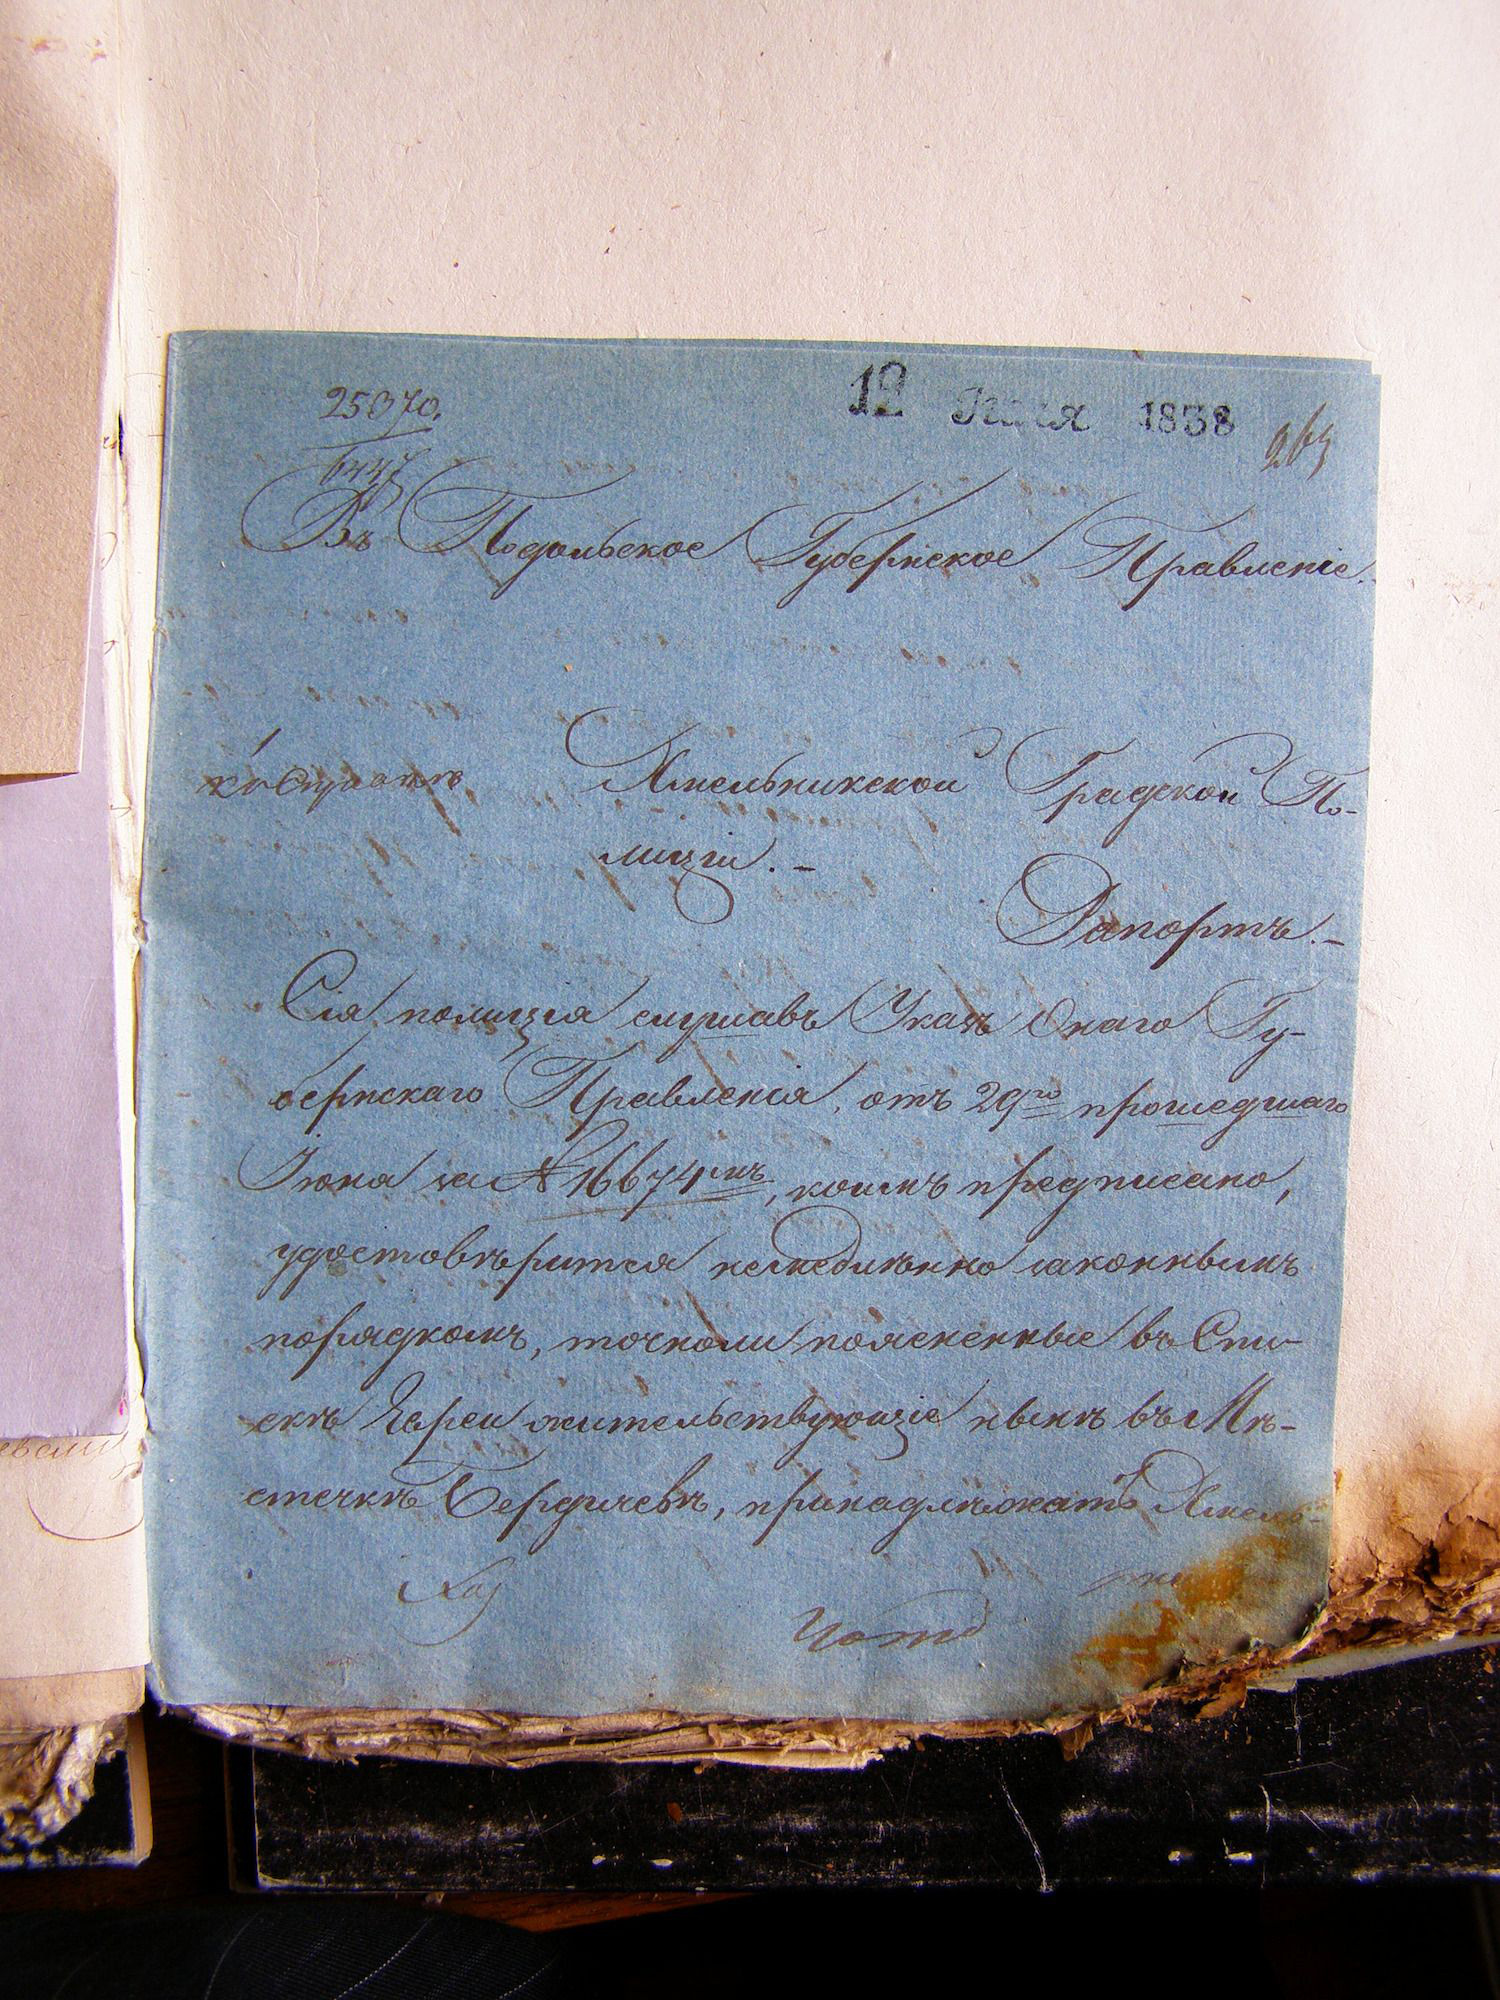 25370.
12 Июля 1838
6447
Въ Подольское Губернское Правленіе.
Хмельникской Градской По-
лиціи. -
Рапортъ. -
Сія полиція слушавъ Указъ Онаго Гу-
бернскаго Правленія, отъ 29го прошедшаго
Іюня за № 16674мъ, коимъ предписано,
удостовѣрится немедлѣнно законнымъ
порядкомъ, точноли поясненные въ Спи-
скѣ Евреи жительствующіе нынѣ въ Мѣ-
стечкѣ Бердичевѣ, принадлѣжатъ Хмель-